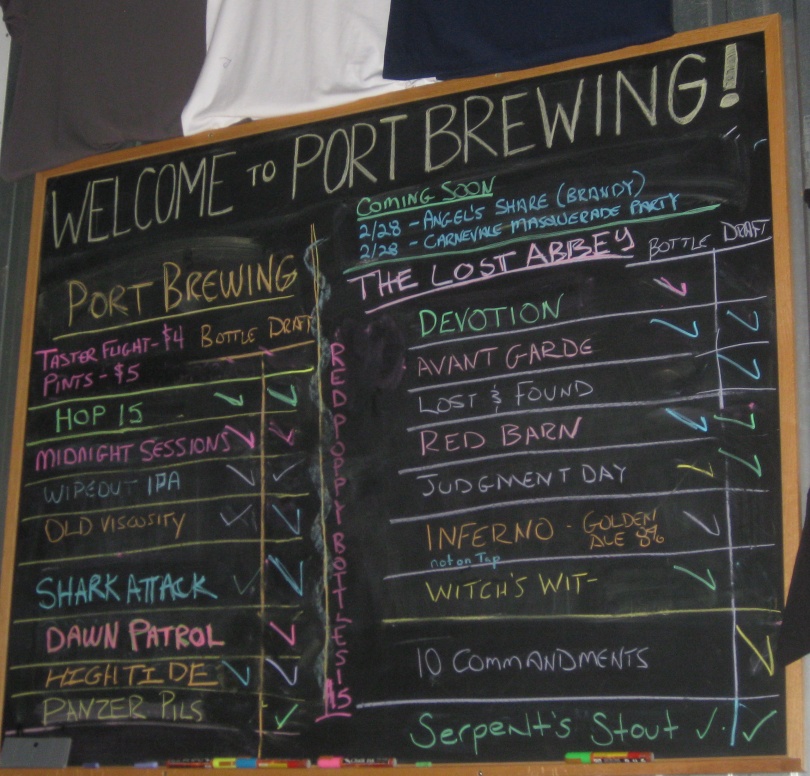 WELCOME TO PORT BREWING!
COMING SOON
2/28 - ANGEL'S SHARE (BRANDY)
2/28 - CARNEVALE MASQUERADE PARTY
PORT BREWING
TASTER FLIGHT - $4
PINTS - $5
BOTTLE DRAFT
HOP 15
MIDNIGHT SESSIONS
WIPEOUT IPA
OLD VISCOSITY
SHARK ATTACK
DAWN PATROL
HIGH TIDE
PANZER PILS
RED POPPY BOTTLES $15
THE LOST ABBEY
BOTTLE DRAFT
DEVOTION
AVANT GARDE
LOST & FOUND
RED BARN
JUDGMENT DAY
INFERNO - GOLDEN ALE 8%
not on Tap
WITCH'S WIT-
10 COMMANDMENTS
Serpent's Stout